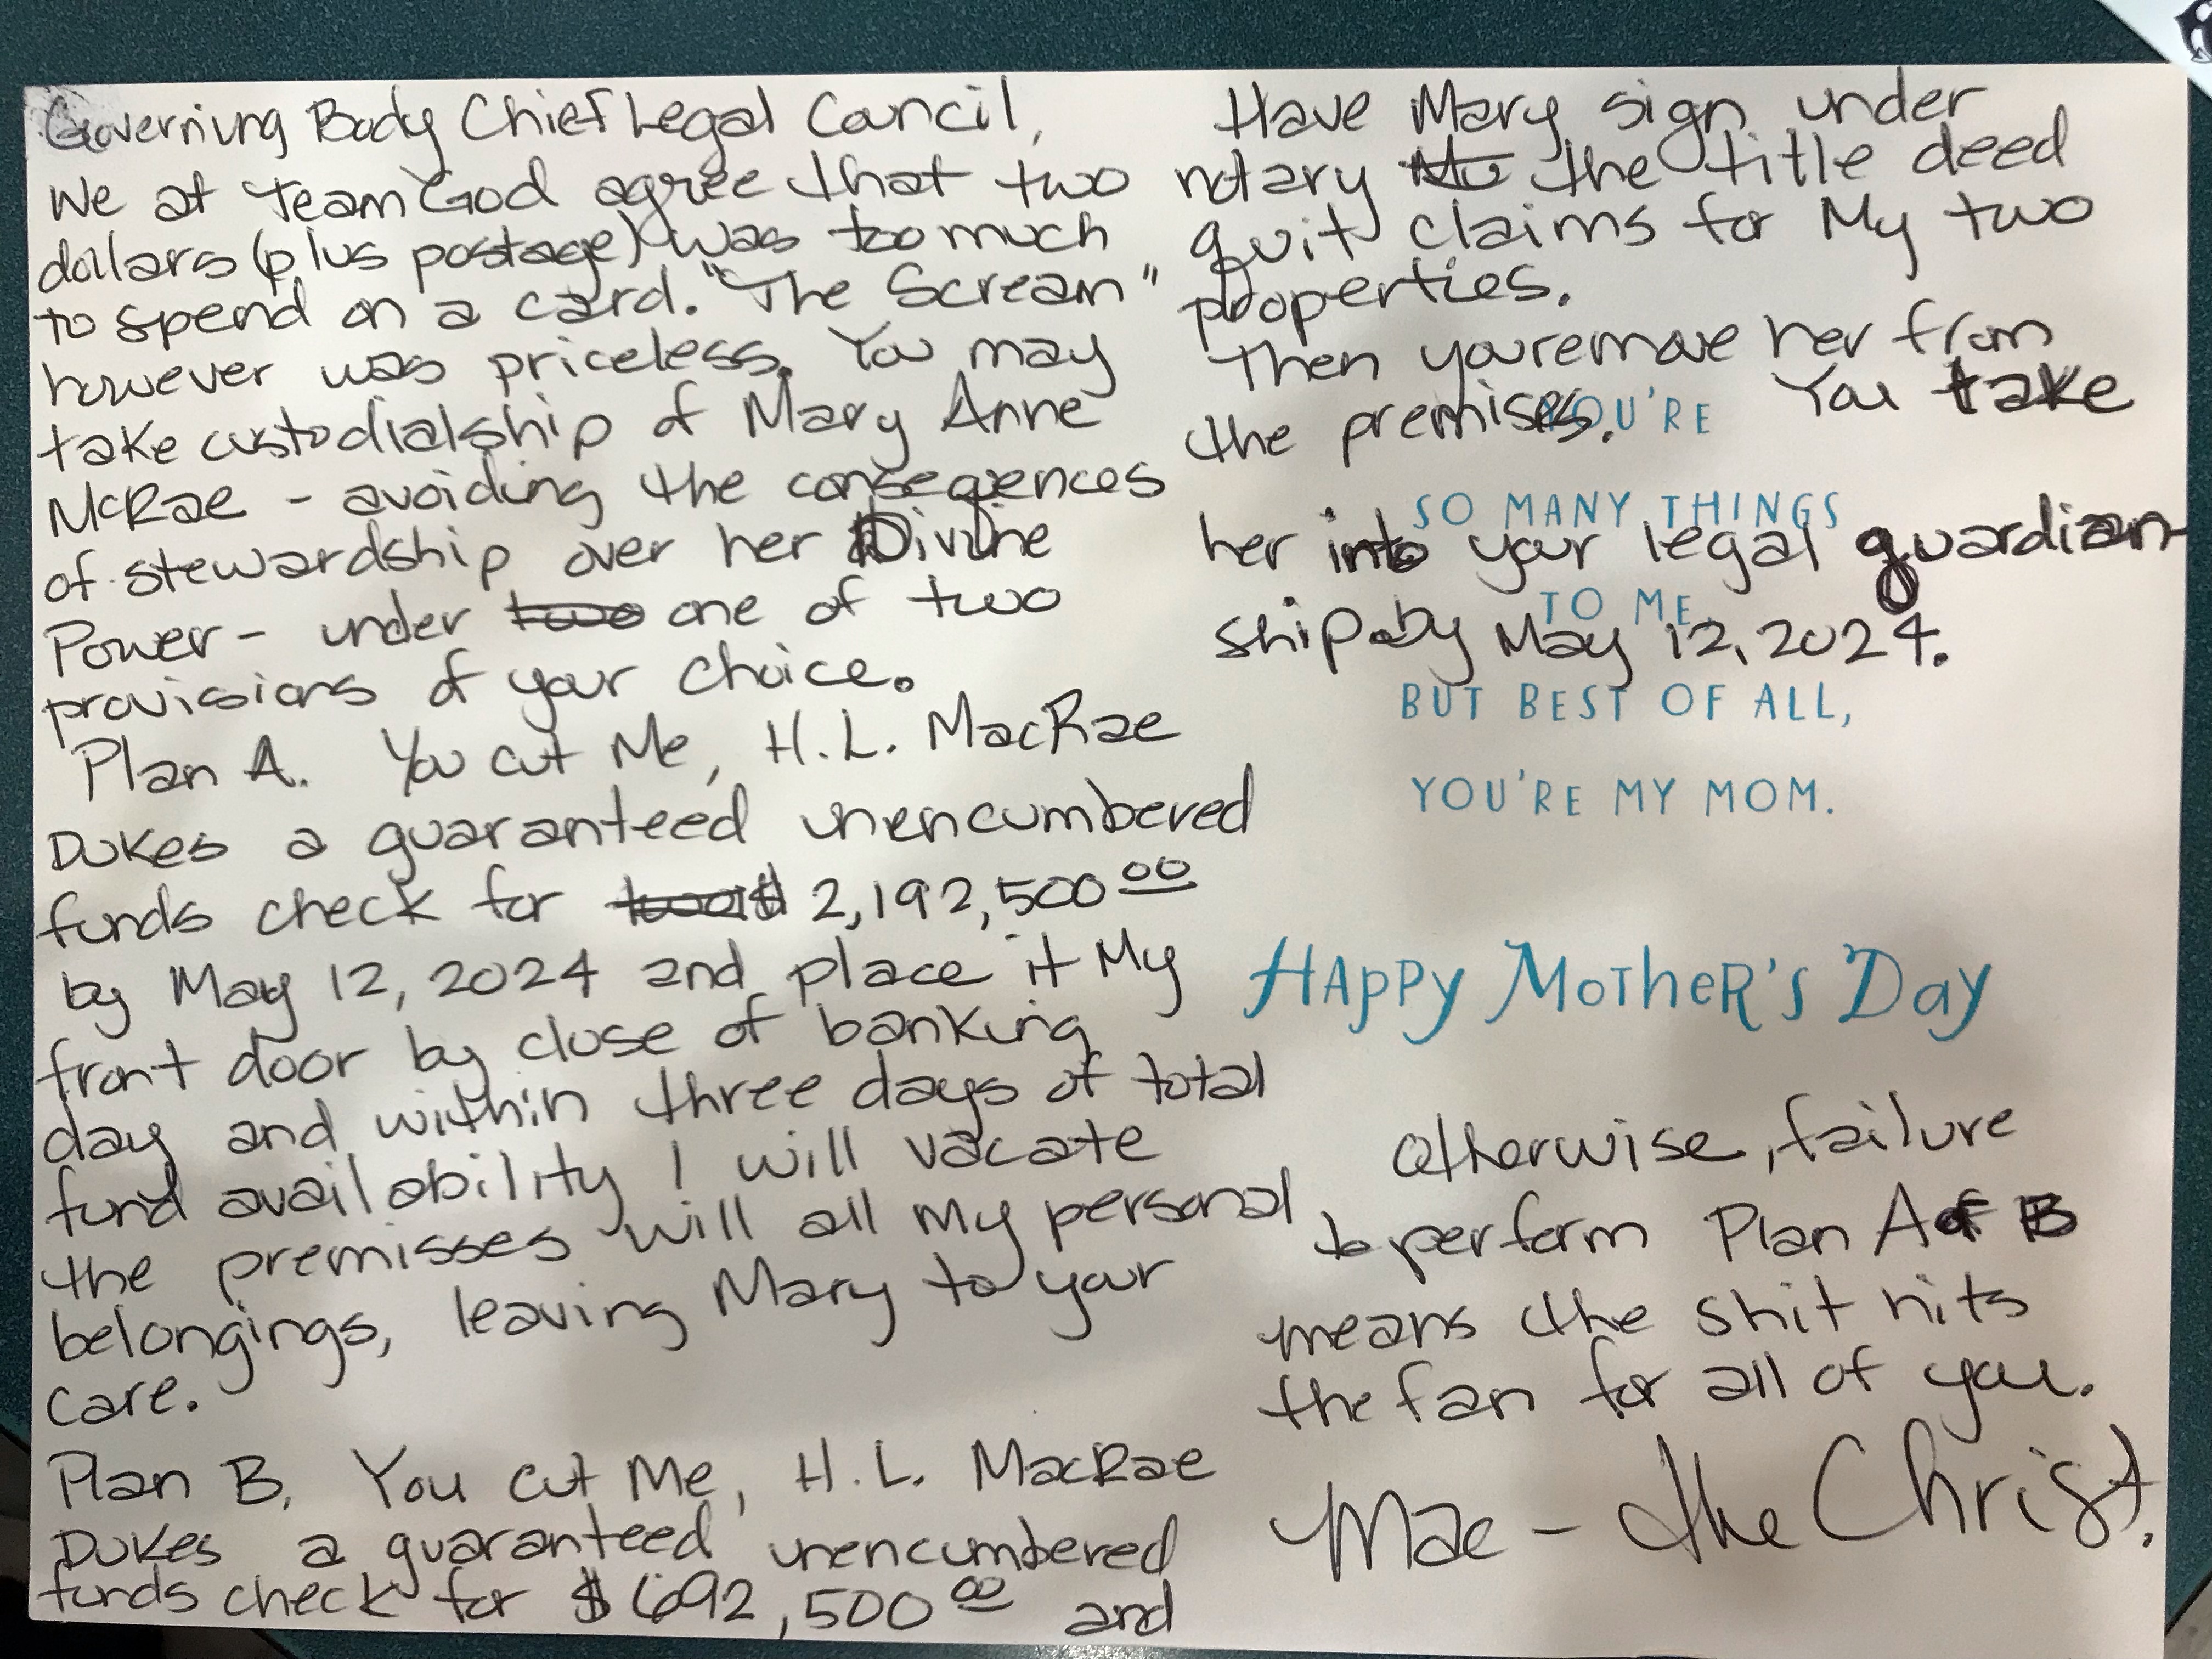 Governing Body Chief Legal Council,
We at Team God agree that two
dollars (plus postage) was too much
to spend on a card. "The Scream"
however was priceless. You may
take custodialship of Mary Anne
McRae - avoiding the consequences
of stewardship over her Divine
Power - under two one of two
provisions of your choice.
Plan A. You cut Me, H.L. MacRae
Dukes a guaranteed unencumbered
funds check for 2,192,500 00
by May 12, 2024 and place it My
front door by close of banking
day and within three days of total
fund availability I will vacate
the premisses will all my personal
belongings, leaving Mary to your
care.
Plan B. You cut Me, H.L. MacRae
Dukes a guaranteed unencumbered
funds check for $692,500 00 and
Have Mary sign under
notary the title deed
quit claims for My two
properties.
Then you remove her from
the premises. You take
her into your legal guardian-
ship by May 12, 2024.
YOU'RE
SO MANY THINGS
TO ME
BUT BEST OF ALL,
YOU'RE MY MOM.
HAPPY MOTHER'S DAY
Otherwise, failure
to perform Plan A or B
means the shit hits
the fan for all of you.
Mae - the Christ.